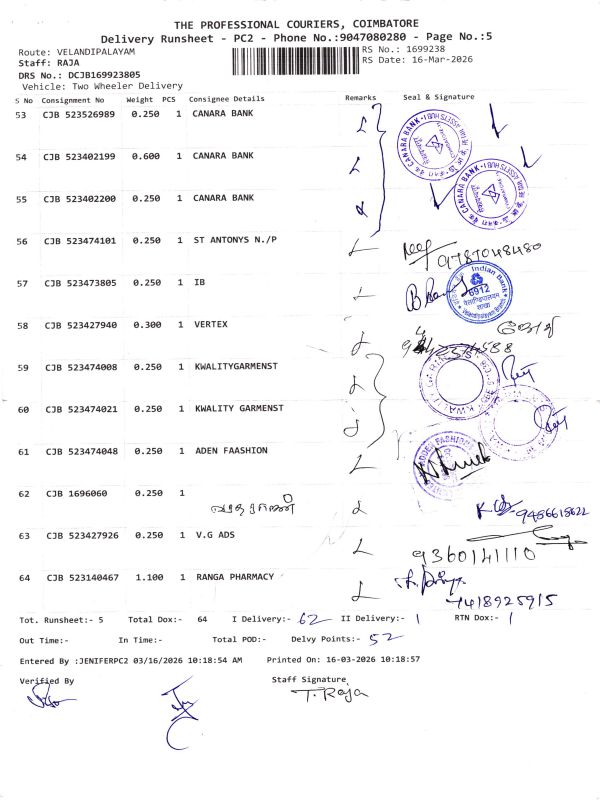 THE PROFESSIONAL COURIERS, COIMBATORE
Delivery Runsheet - PC2 - Phone No.:9047080280 - Page No.:5
Route: VELANDIPALAYAM
RS No.: 1699238
Staff: RAJA
RS Date: 16-Mar-2026
DRS No.: DCJB169923805
Vehicle: Two Wheeler Delivery
S No Consignment No Weight PCS Consignee Details Remarks Seal & Signature
53 CJB 523526989 0.250 1 CANARA BANK L
54 CJB 523402199 0.600 1 CANARA BANK L
55 CJB 523402200 0.250 1 CANARA BANK L
56 CJB 523474101 0.250 1 ST ANTONYS N./P L
9787048480
57 CJB 523473805 0.250 1 IB L
Indian Bank
6912
58 CJB 523427940 0.300 1 VERTEX L
59 CJB 523474008 0.250 1 KWALITYGARMENST L
60 CJB 523474021 0.250 1 KWALITY GARMENST
61 CJB 523474048 0.250 1 ADEN FAASHION L
62 CJB 1696060 0.250 1 L
9486618622
63 CJB 523427926 0.250 1 V.G ADS L
9360141110
64 CJB 523140467 1.100 1 RANGA PHARMACY L
7418925915
Tot. Runsheet:- 5 Total Dox:- 64 I Delivery:- 62 II Delivery:- 1 RTN Dox:- 1
Out Time:- In Time:- Total POD:- Delvy Points:- 52
Entered By :JENIFERPC2 03/16/2026 10:18:54 AM Printed On: 16-03-2026 10:18:57
Verified By Staff Signature
T. Raja